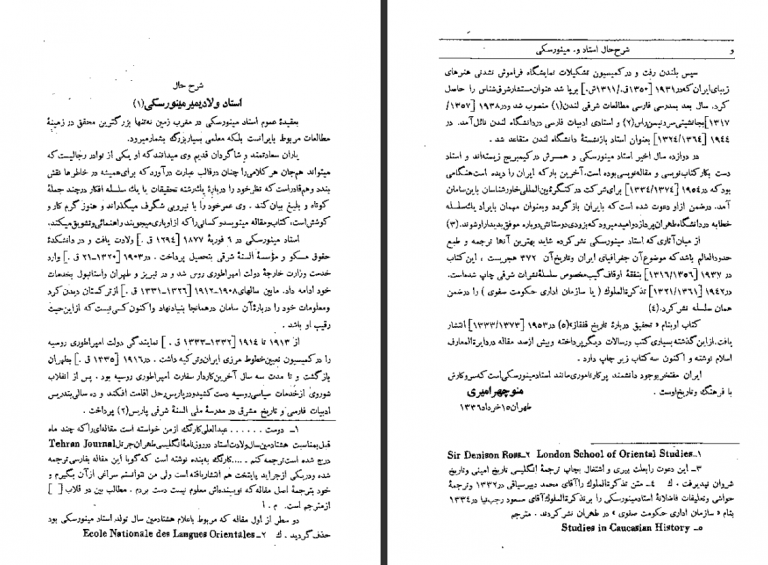 شرح حال
استاد ولادیمیر مینورسکی(۱)
بعقیدهٔ عموم استاد مینورسکی در مغرب زمین نه‌تنها بزرگترین محقق در زمینهٔ
مطالعات مربوط بایرانست بلکه معلمی بسیار بزرگ بشمار میرود.
یاران سعادتمند و شاگردان قدیم وی میدانند که او یکی از نوادر رجالیست که
میتواند هم جان هر کلامی را چنان در قالب عبارت در آورد که برای همیشه در خاطرها نقش
بندد و هم قادر است که نظر خود را دربارهٔ یك رشته تحقیقات یا یك سلسله افکار در چند جملهٔ
کوتاه و بلیغ بیان کند. وی عمر خود را با نیرویی شگرف میگذراند و هنوز گرم کار و
کوشش است، کتاب و مقاله مینویسد و کسانی را که از او یاری میجویند راهنمائی و تشویق میکند.
استاد مینورسکی در ۶ فوریهٔ ۱۸۷۷ [۱۲۹۴ ق.] ولادت یافت و در دانشکدهٔ
حقوق مسکو و مؤسسهٔ السنهٔ شرقی بتحصیل پرداخت. در ۱۹۰۳ [۱۳۲۰-۲۱ ق.] وارد
خدمت وزارت خارجهٔ دولت امپراطوری روس شد و در تبریز و طهران و استانبول بخدمات
خود ادامه داد. مابین سالهای ۱۹۰۸-۱۹۱۲ [۱۳۲۶-۱۳۳۱ ق.] از ترکستان دیدن کرد
و معلومات خود را دربارهٔ آن سامان در همانجا بنیاد نهاد و اکنون کسی نیست که از این حیث
رقیب او باشد.
از ۱۹۱۳ تا ۱۹۱۴ [۱۳۳۲-۱۳۳۳ ق.] نمایندگی دولت امپراطوری روسیه
را در کمیسیون تعیین خطوط مرزی ایران و ترکیه داشت. در ۱۹۱۶ [۱۳۳۵ ق.] بطهران
بازگشت و تا مدت سه سال آخرین کاردار سفارت امپراطوری روسیه بود. پس از انقلاب
شوروی از خدمات سیاسی روسیه دست کشید و در پاریس رحل اقامت افکند و ده سالی بتدریس
ادبیات فارسی و تاریخ مشرق در مدرسهٔ ملی السنهٔ شرقی پاریس(۲) پرداخت.
۱- دوست ...... عبدالعلی کارنگ از من خواسته است مقاله‌ای را که چند ماه
قبل بمناسبت هشتادمین سال ولادت استاد در روزنامهٔ انگلیسی طهران جرنل Tehran Journal
درج شده است ترجمه کنم ... کارنگ به بنده نوشته است که گویا این مقاله بفارسی ترجمه
شده و در یکی از جراید پایتخت هم انتشار یافته است ولی من نتوانستم سراغی از آن بگیرم و
خود بترجمهٔ اصل مقاله که نویسنده‌اش معلوم نیست دست بردم. مطالب بین دو قلاب [ ]
از مترجم است. م. ا
دو سطر از اول مقاله که مربوط باعلام هشتادمین سال تولد استاد مینورسکی بود
حذف گردید. ك ۲- Ecole Nationale des Langues Orientales
و شرح حال استاد و. مینورسکی
سپس بلندن رفت و در کمیسیون تشکیلات نمایشگاه فراموش نشدنی هنرهای
زیبای ایران که در ۱۹۳۱ [۱۳۵۰ ق./۱۳۱۱ ش.] برپا شد عنوان مستشار شرقشناس را حاصل
کرد. سال بعد بمدرسی فارسی مطالعات شرقی لندن(۱) منصوب شد و در ۱۹۳۸ [۱۳۵۷/
۱۳۱۷] بجانشینی سر دنیسن راس(۲) و استادی ادبیات فارسی در دانشگاه لندن نائل آمد. در
۱۹۴۴ [۱۳۶۴/۱۳۲۴] بعنوان استاد بازنشستهٔ دانشگاه لندن متقاعد شد.
در دوازده سال اخیر استاد مینورسکی و همسرش در کیمبریج زیسته‌اند و استاد
دست بکار کتاب نویسی و مقاله نویسی بوده است. آخرین بار که ایران را دیده است هنگامی
بود که در ۱۹۵۴ [۱۳۷۴] برای شرکت در کنگرهٔ بین‌المللی خاورشناسان باین سامان
آمد. در ضمن از او دعوت شده است که بایران باز گردد و بعنوان مهمان بایراد یك سلسله
خطابه در دانشگاه طهران پردازد و امید میرود که بزودی دوستانش دوباره موفق بدیدار او شوند. (۳)
از میان آثاری که استاد مینورسکی نشر کرده شاید بهترین آنها ترجمه و طبع
حدود العالم باشد که موضوع آن جغرافیای ایران و تاریخ آن ۳۷۲ هجریست. این کتاب
در ۱۹۳۷ [۱۳۵۶/۱۳۱۶] بنفقهٔ اوقاف گیب مخصوص سلسلهٔ نشرات شرقی چاپ شده است.
در ۱۹۴۲ [۱۳۶۱/۱۳۲۱] تذکرة الملوك (یا سازمان اداری حکومت صفوی) را در ضمن
همان سلسله نشر کرد. (۴)
کتاب او بنام «تحقیق دربارهٔ تاریخ قفقاز» (۵) در ۱۹۵۳ [۱۳۷۳/۱۳۳۳] انتشار
یافت. از این گذشته بسیاری کتب و رسالات دیگر پرداخته و بیش از صد مقاله در دایرة المعارف
اسلام نوشته و اکنون سه کتاب زیر چاپ دارد.
ایران مفتخر بوجود دانشمند پر کار ناموری مانند استاد مینورسکی است که سر و کارش
با فرهنگ و تاریخ اوست.
منوچهر امیری
طهران ۱۵ خرداد ۱۳۳۶
۱- London School of Oriental Studies ۲- Sir Denison Ross
۳- این دعوت را بعلت پیری و اشتغال بچاپ ترجمهٔ انگلیسی تاریخ امینی و تاریخ
شروان نپذیرفت. ك ۴- متن تذکرة الملوك را آقای محمد دبیرسیاقی در ۱۳۳۲ و ترجمهٔ
حواشی و تعلیقات فاضلانهٔ استاد مینورسکی را بر تذکرة الملوك آقای مسعود رجب‌نیا در ۱۳۳۴
بنام «سازمان اداری حکومت صفوی» در طهران نشر کردند. مترجم
۵- Studies in Caucasian History